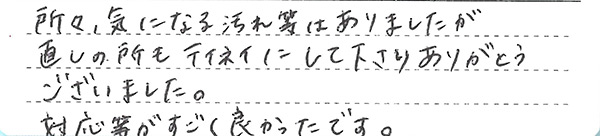 所々、気になる汚れ等はありましたが
直しの所もテイネイにして下さりありがとう
ございました。
対応等がすごく良かったです。